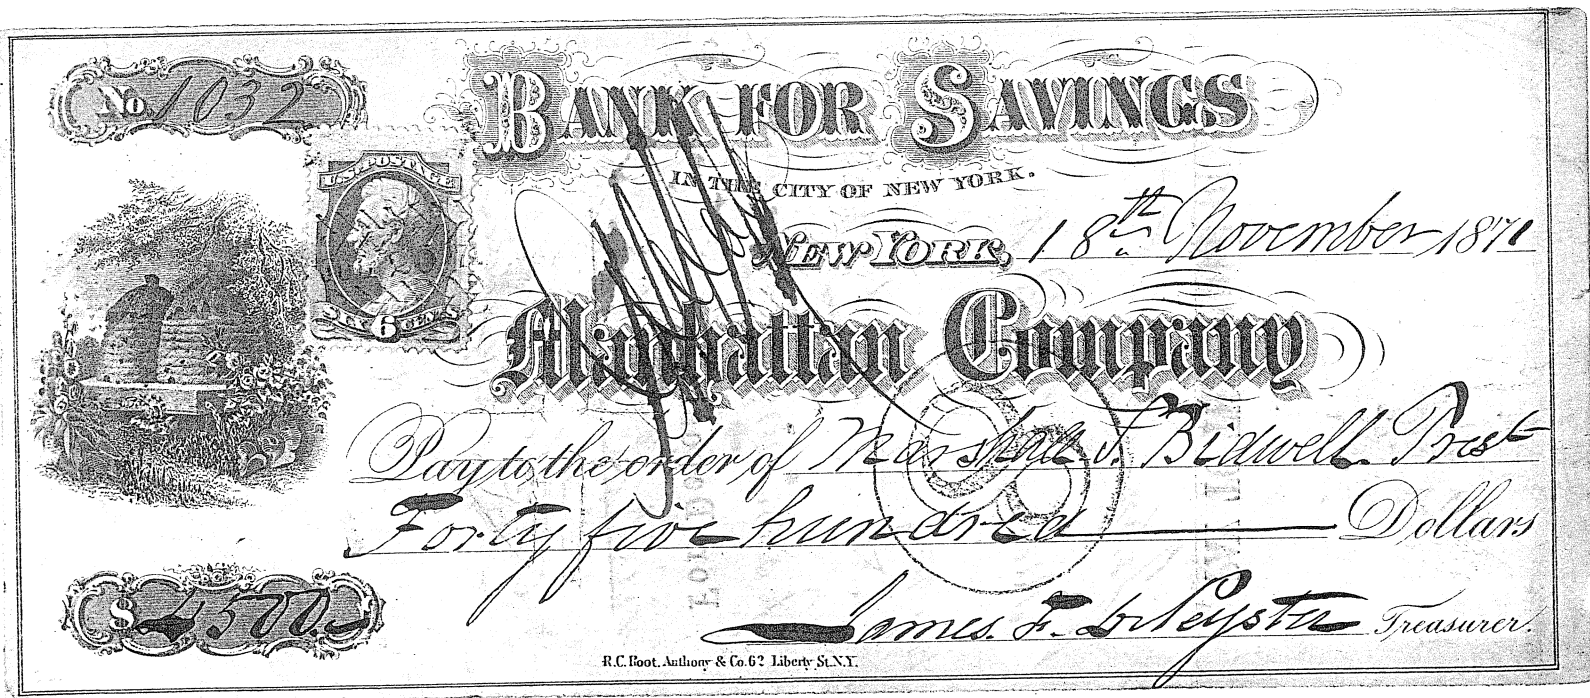 No 1032
BANK FOR SAVINGS
IN THE CITY OF NEW YORK.
U.S. POSTAGE
SIX 6 CENTS
NEW YORK, 18th November 1871
Manhattan Company
Pay to the order of Marshall S. Bidwell. Prest
Forty five hundred Dollars
$ 4500.
James F. DePeyster Treasurer.
R.C. Root, Anthony & Co. 62 Liberty St. N.Y.